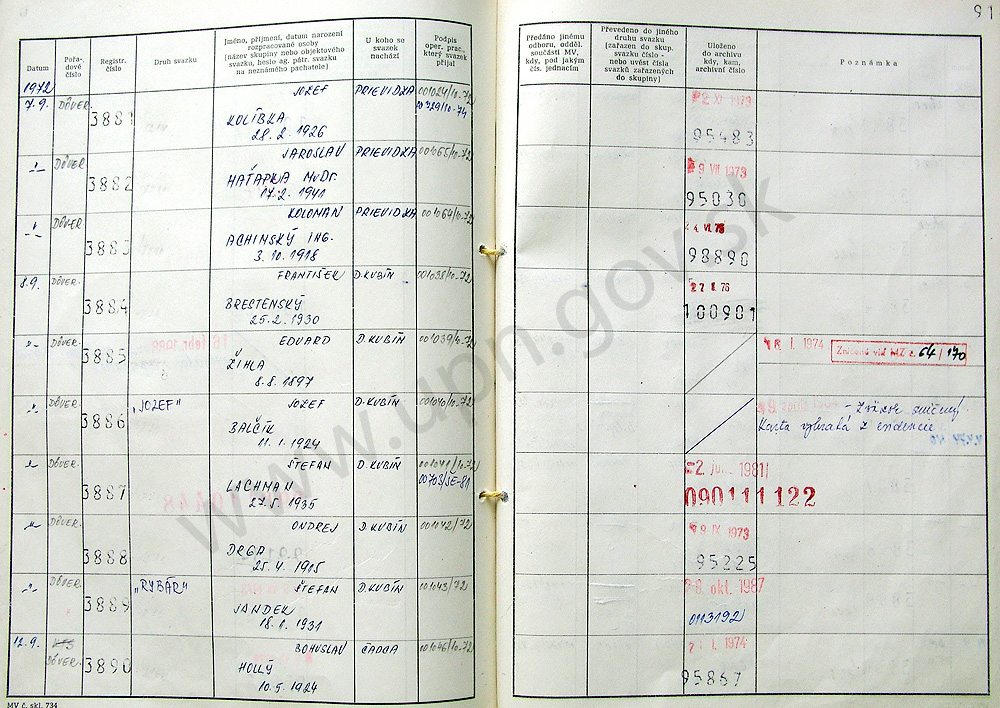 91
Datum
Pořadové číslo
Registr. číslo
Druh svazku
Jméno, příjmení, datum narození rozpracované osoby (název skupiny nebo objektového svazku, heslo ag. pátr. svazku na neznámého pachatele)
U koho se svazek nachází
Podpis oper. prac., který svazek přijal
Předáno jinému odboru, odděl. součásti MV, kdy, pod jakým čís. jednacím
Převedeno do jiného druhu svazku (zařazen do skup. svazku číslo - nebo uvést čísla svazků zařazených do skupiny)
Uloženo do archivu kdy, kam, archivní číslo
Poznámka
1972
7.9. DÔVER 3881 JOZEF PRIEVIDZA 001024/10-72
KOLÍBKA
28. 2. 1926
XI 1973
95483
DÔVER 3882 JAROSLAV PRIEVIDZA 001065/10-72
HAŤAPKA MUDr.
17. 2. 1941
9 VII 1973
95030
DÔVER 3883 KOLOMAN PRIEVIDZA 001064/10-72
ACHINSKÝ ING.
3. 10. 1918
98890
8.9. DÔVER. 3884 FRANTIŠEK D. KUBÍN 001038/10-72
BRESTENSKÝ
25. 2. 1930
100901
-"- DÔVER. 3885 EDUARD D. KUBÍN 001039/10-72
ŽIHLA
8. 8. 1897
I. 1974 Zničené viď MZ č. 64/170
-"- DÔVER. 3886 "JOZEF" JOZEF D. KUBÍN 001040/10-72
BALČÍK
11. 1. 1924
- Zväzok zničený.
Karta vybratá z evidencie
-"- DÔVER. 3887 ŠTEFAN D. KUBÍN 001041/10-72
LACHMAN
27. 5. 1935
1981
090111122
-"- DÔVER. 3888 ONDREJ D. KUBÍN 001042/72
DRGA
25. 4. 1915
9 IX 1973
95225
-"- DÔVER. 3889 "RYBÁR" ŠTEFAN D. KUBÍN 001043/72
JANDEK
18. 1. 1931
okt. 1987
0113192
12.9. DÔVER. 3890 BOHUSLAV ČADCA 001046/10-72
HOLLÝ
10. 5. 1924
I. 1974
95867
MV č. skl. 734
www.upn.gov.sk